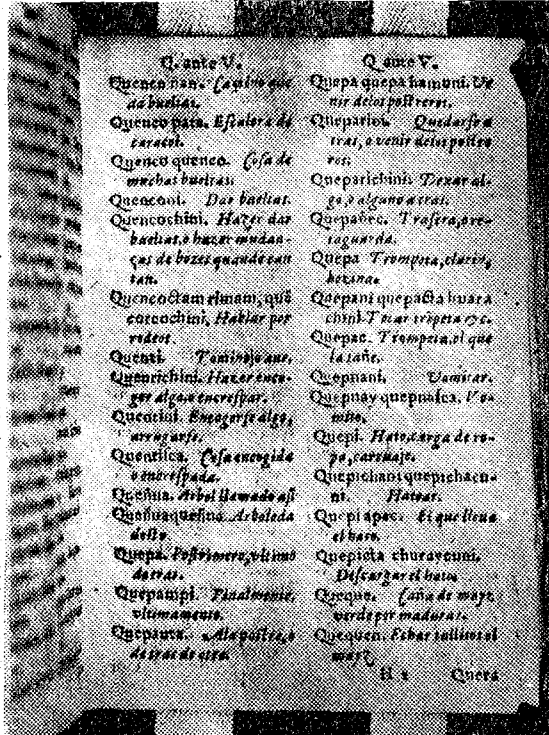 Q. ante V.
Quenco ñan. Camino que
da bueltas.
Quenco pata. Escalera de
caracol.
Quenco quenco. Cosa de
muchas bueltas.
Quenconi. Dar bueltas.
Quencochini. Hazer dar
bueltas, o hazer mudan-
ças de bozes quando can
tan.
Quencoctam rimani, quē
coccochini. Hablar por
rodeos.
Quenti. Tominejo aue.
Quentichini. Hazer enco-
ger algo, o encrespar.
Quentini. Encogerse algo,
arrugarse.
Quentisca. Cosa encogida
o encrespada.
Queñua. Arbol llamado assi
Queñuaqueñua. Arboleda
desto.
Quepa. Postrimero, vltimo
de tras.
Quepampi. Finalmente,
vltimamente.
Quepanta. Ala postre, o
de tras de otro.
Q ante V.
Quepa quepa hamuni. Ve
nir delos postreros.
Queparini. Quedarse a
tras, o venir delos postre
ros.
Queparichini. Dexar al-
go, o alguno a tras.
Quepañec. Trasera, o re-
taguarda.
Quepa. Trompeta, clarin,
bozina.
Quepani quepacta huaca
chini. Tocar trōpeta &c.
Quepac. Trompeta, el que
la tañe.
Quepnani. Vomitar.
Quepnay quepnasca. Vo-
mito.
Quepi. Hato, carga de ro-
pa, carruaje.
Quepichani quepichacu-
ni. Hatear.
Quepi apac. El que lleua
el hato.
Quepicta churaycuni.
Descargar el hato.
Queque. Caña de mayz
verde por madurar.
Quequen. Echar tallitos el
mayz
H 2 Quera